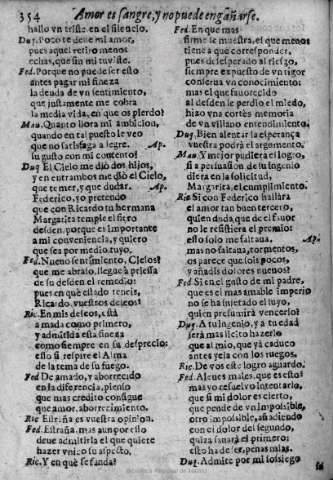 354 Amor es sangre, y no puede engañarse.
hallo vn triste en el silencio.
Duq. Poco te deue mi amor,
pues aquel retiro menos
echas, que sin mi tuviste.
Fed. Porque no puede ser esso
antes pagar mi fineza
la deuda de vn sentimiento,
que justamente me cobra
la media vida, en que os pierdo?
Mau. Quanto llora mi ambicion,
quando en tal puesto le veo
que no satisfaga alegre. Ap.
su gusto con mi contento!
Duq. El Cielo me diò dos hijos,
y en entrambos me diò el Cielo,
que temer, y que dudar. Ap.
Federico, yo pretendo
que con Ricardo tu hermana
Margarita temple el fiero
desden, porque es importante
a mi conveniencia, y quiero
que sea por medio tuyo.
Fed. Nuevo sentimiento, Cielos!
que me abraso, llegue apriessa
de su desden el remedio:
pues en què estado teneis,
Ricardo, vuestros deseos?
Ric. En mis deseos, està
amada como primero,
y admitida esta fineza
como siempre con su desprecio:
esso si respire el Alma
de la tema de su fuego.
Fed. De amado, y aborrecido
en la diferencia, pienso
que mas credito consigue
que amor, aborrecimiento.
Ric. Estraña es vuestra opinion.
Fed. Estraña, mas aun por esso
deve admitirla el que quiere
hazer vnico su aspecto.
Ric. Y en què se funda?
Fed. En que mas
firme se muestra, el que menos
tiene a que corresponder,
pues desesperado al riesgo,
siempre expuesto de vn rigor
conserva vn conocimiento:
mas el que favorecido
al desden le perdiò el miedo,
hizo vna cortès memoria
de vn villano entendimiento.
Duq. Bien alentar la esperança
vuestra podrà el argumento.
Mau. Y mejor pudiera el logro,
si a persuasion de su ingenio
diera en la solicitud,
Margarita, el cumplimiento.
Ric. Si con Federico hallara
el amor tan buen tercero,
quien duda, que de el fauor
no le resistiera el premio:
esso solo me faltaua, Ap.
mas no faltaua, tormentos,
os parece que sois pocos,
y añadis dolores nueuos?
Fed. Si en el gusto de mi padre,
que es el mas amable imperio
no se ha sujetado el suyo,
quien presumirà vencerlo?
Duq. A tu ingenio, y a tu edad
serà mas licito hazerlo
que al mio, que yà caduco
antes yela con los ruegos.
Ric. De vos este logro aguardo.
Fed. A lcues males, que es esto!
mas yo resuelvo intentarlo,
que si mi dolor es cierto,
que pende de vn impossible,
otro impossible, añadiendo
con el dolor del segundo,
quiza sanarà el primero:
esto ha de ser, penas mias.
Duq. Admite por mi sossiego